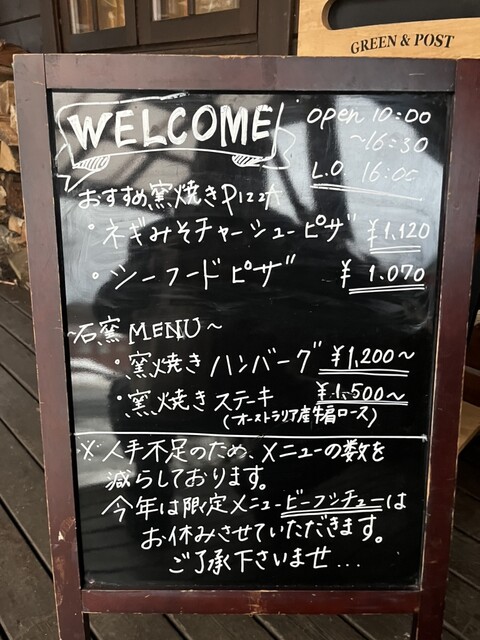 GREEN & POST
WELCOME
open 10:00
~16:30
L.O. 16:00
おすすめ窯焼きPIZZA
・ネギみそチャーシューピザ ¥1,120
・シーフードピザ ¥1.070
~石窯 MENU~
・窯焼きハンバーグ ¥1,200~
・窯焼きステーキ ¥1,500~
(オーストラリア産牛肩ロース)
※人手不足のため、メニューの数を
減らしております。
今年は限定メニュービーフシチューは
お休みさせていただきます。
ご了承下さいませ...